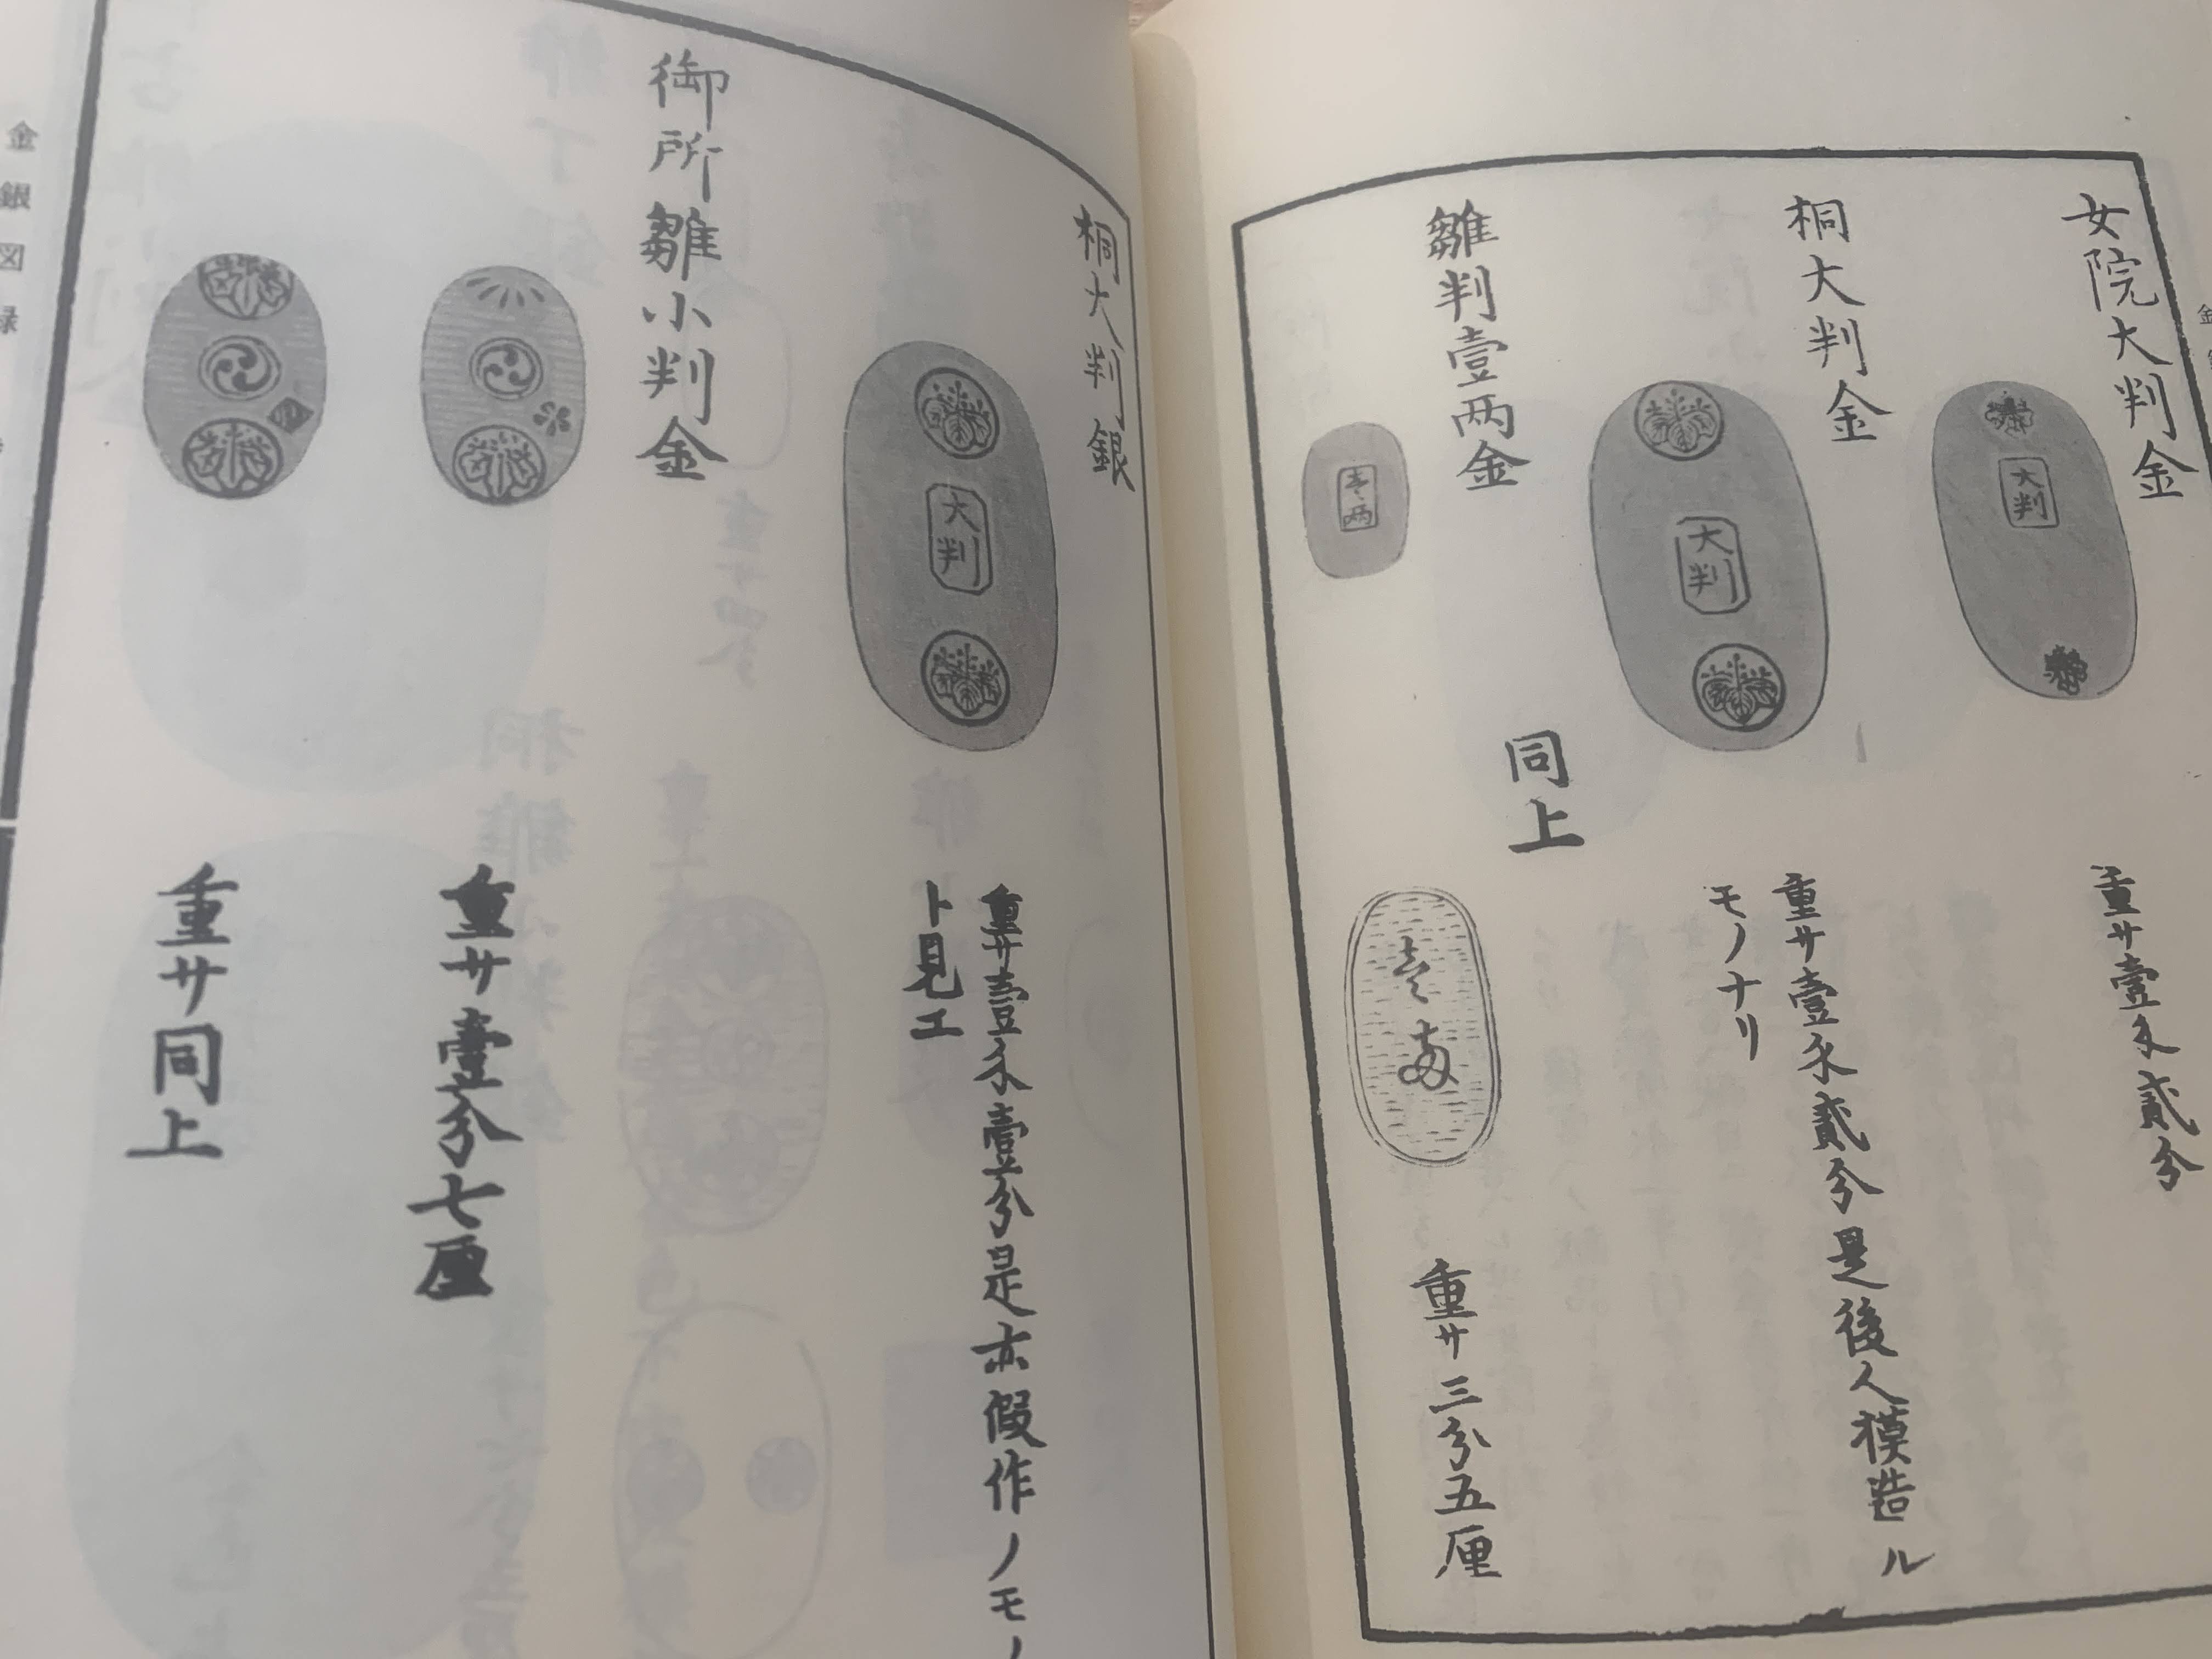 女院大判金
大判
重サ壹匁貳分
桐大判金
大判
重サ壹匁貳分是後人摸造ル
モノナリ
雛判壹两金
壱两
同上
壱两
重サ三分五厘
桐大判銀
大判
重サ壹匁壹分是亦假作ノモノ
ト見エ
御所雛小判金
重サ壹分七厘
重サ同上
金銀図録